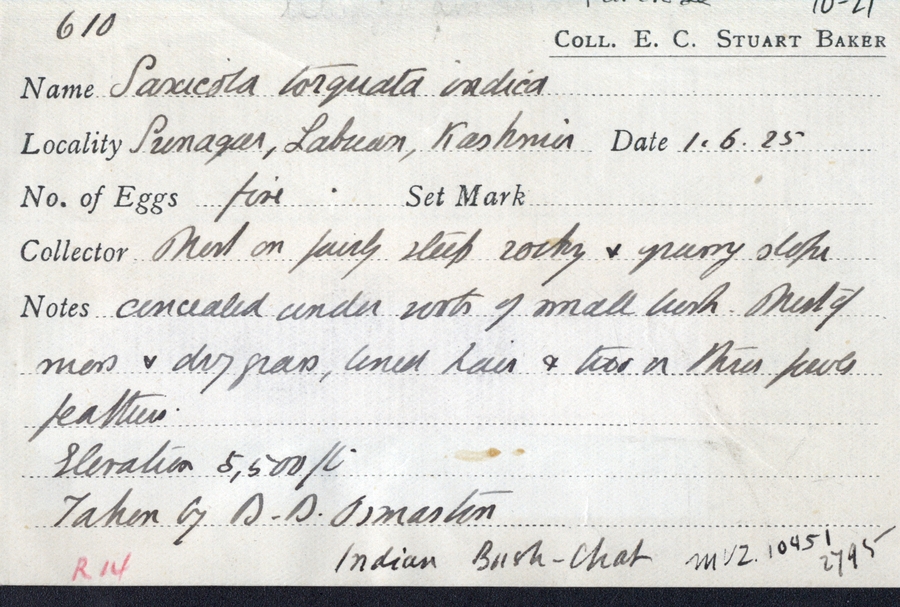 610
10-21
COLL. E. C. STUART BAKER
Name Saxicola torquata indica
Locality Srinagar, Labuan, Kashmir Date 1.6.25
No. of Eggs five. Set Mark
Collector Nest on fairly steep rocky & grassy slope
Notes concealed under roots of small bush. Nest of
moss & dry grass, lined hair & two or three fowls
feathers.
Elevation 5,500 ft
Taken by B. B. Osmaston
Indian Bush-Chat MVZ. 10451
2795
R 14